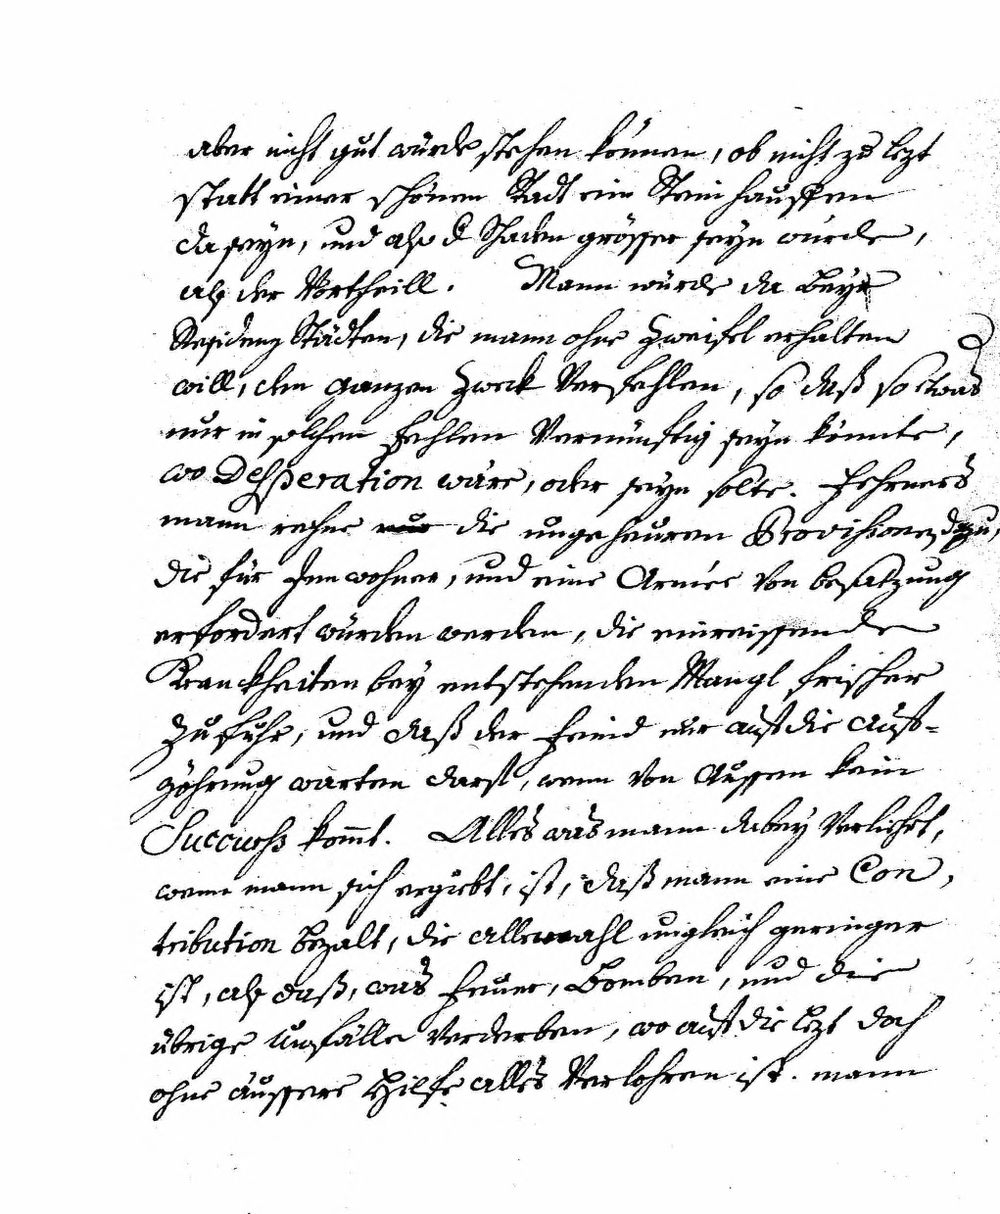 aber nicht gut würde stehen können, ob nicht zu lezt
statt einer schönen Stadt ein Steinhauffen
da seyn, und also d Schaden grösser seyn würde,
als der Vortheill. Mann würde da bey
Residenz Städten, die mann ohne Zweifel erhalten
will, den ganzen Zweck Verfehlen, so daß so etwas
nur in solchen Fehlen Vernünftig seyn könnte,
wo Desperation wäre, oder seyn solte. Fehrners
mann rechne die ungeheuren Provisionen dazu,
die für Innwohner, und eine Armée von besatzung
erfordert würden werden, die einreissende
Kranckheiten bey entstehenden Mangl frischer
Zufuhr, und daß der Feind nur auf die Auß-
zöhrung warten darf, wenn von Aussen kein
Succurß kom̄t. Alles was mann dabey Verliehrt,
wenn mann sich ergiebt, ist, daß mann eine Con,
tribution bezalt, die allemahl ungleich geringer
ist, als daß, was Feuer, Bomben, und die
übrige Unfälle Verderben, wo auf die lezt doch
ohne äussere Hilfe alles Verlohren ist. mann